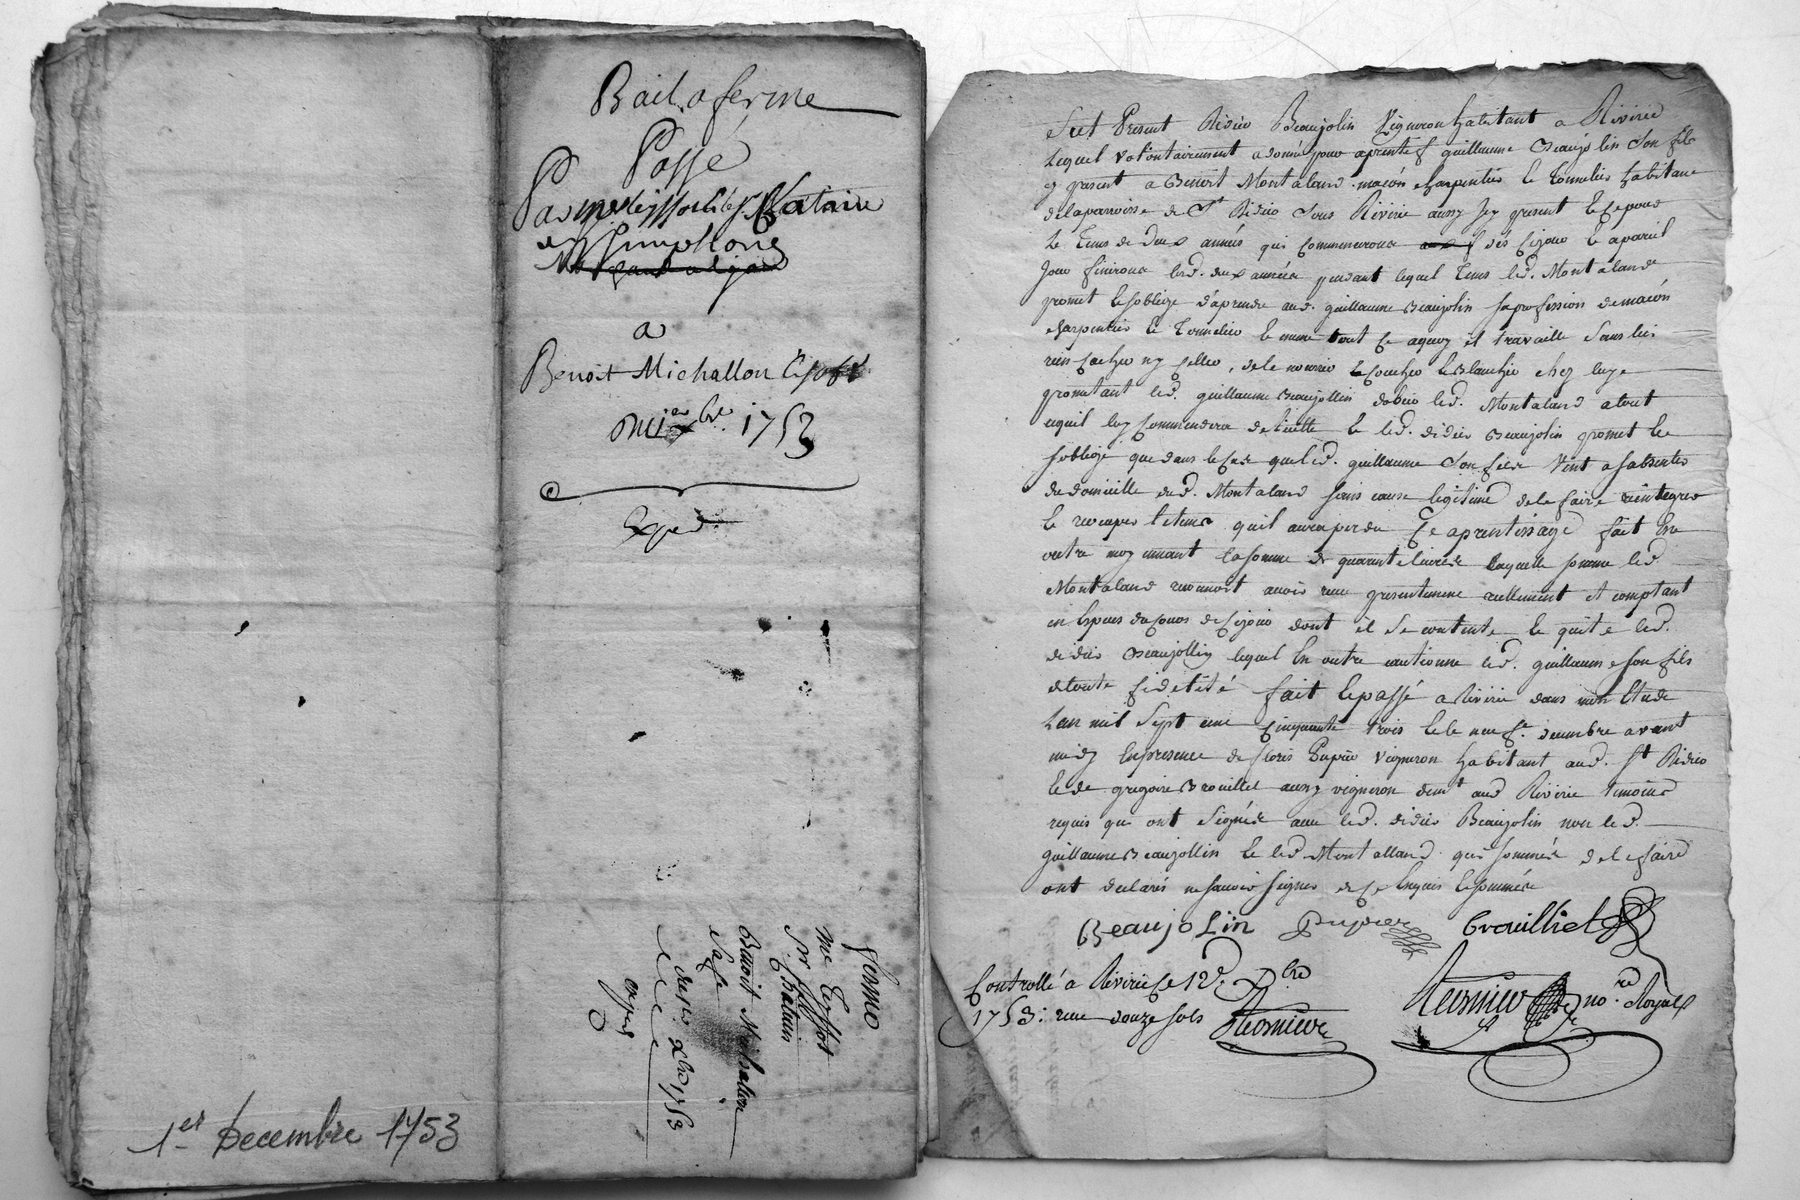 Bail a ferme
Passé
Par
a
Benoit Michallon
1er xbre. 1753
Exped.
1er Decembre 1753
ferme
me Teyssot
Sr Chatain
Benoit Michallon
du 1er xbre 1753
exped
Fut Present Didier Beaujolin Vigneron habitant a Riverie
Lequel volontairement a donné pour aprentif guillaume Beaujolin Son fils
y present a Benoit Montaland macon charpentier Et Tonnelier habitant
de la parroisse de St Didier Sous Riverie aussy Icy present Et ce pour
Le Tems de deux années qui Commenceront des Cejour Et a pareil
Jour finiront lesd. deux années pendant lequel Tems led. Montaland
promet Et soblige d'aprendre aud. guillaume Beaujolin sa profession de macon
charpentier Et Tonnelier Et meme tout Ce aquoy il travaille Sans luy
rien Cacher ny Celler, de le nourrir Et Coucher Et Blanchir chez luy
promettant led. guillaume Beaujollin dobeir led. Montaland a tout
cequil luy Commendera de licitte Et led. didier Beaujolin promet Et
soblige que dans le Cas que led. guillaume Son fils Vint a sabsenter
du domicille dud. Montaland sans cause legitime de le faire reintegrer
Et recuperer le tems quil aura perdu Ce aprentissage fait En
outre moyennant la somme de quarante livres laquelle somme led.
Montaland reconnoit avoir receu presentement reellement et comptant
en Especes du Cours de Cejour dont il Se contente Et quitte led.
didier Beaujollin lequel En outre cautionne led. guillaume son fils
de toute fidelité fait Et passé a Riverie dans mon Etude
Lan mil Sept cent Cinquante trois Et le neuf. decembre avant
midy En presence de floris Dupré Vigneron habitant aud. St Didier
Et de gregoire Brouillet aussy vigneron demt aud Riverie temoins
requis qui ont Signés avec led. didier Beaujolin non led.
guillaume Beaujollin Et led Montalland qui sommés de le faire
ont declarés ne scavoir signer de Ce Enquis Et sommés
BeaujoLin Brouilhet
Controllé a Riverie Ce 12e. Xbre
1753: receu douze sols
no.re Royal